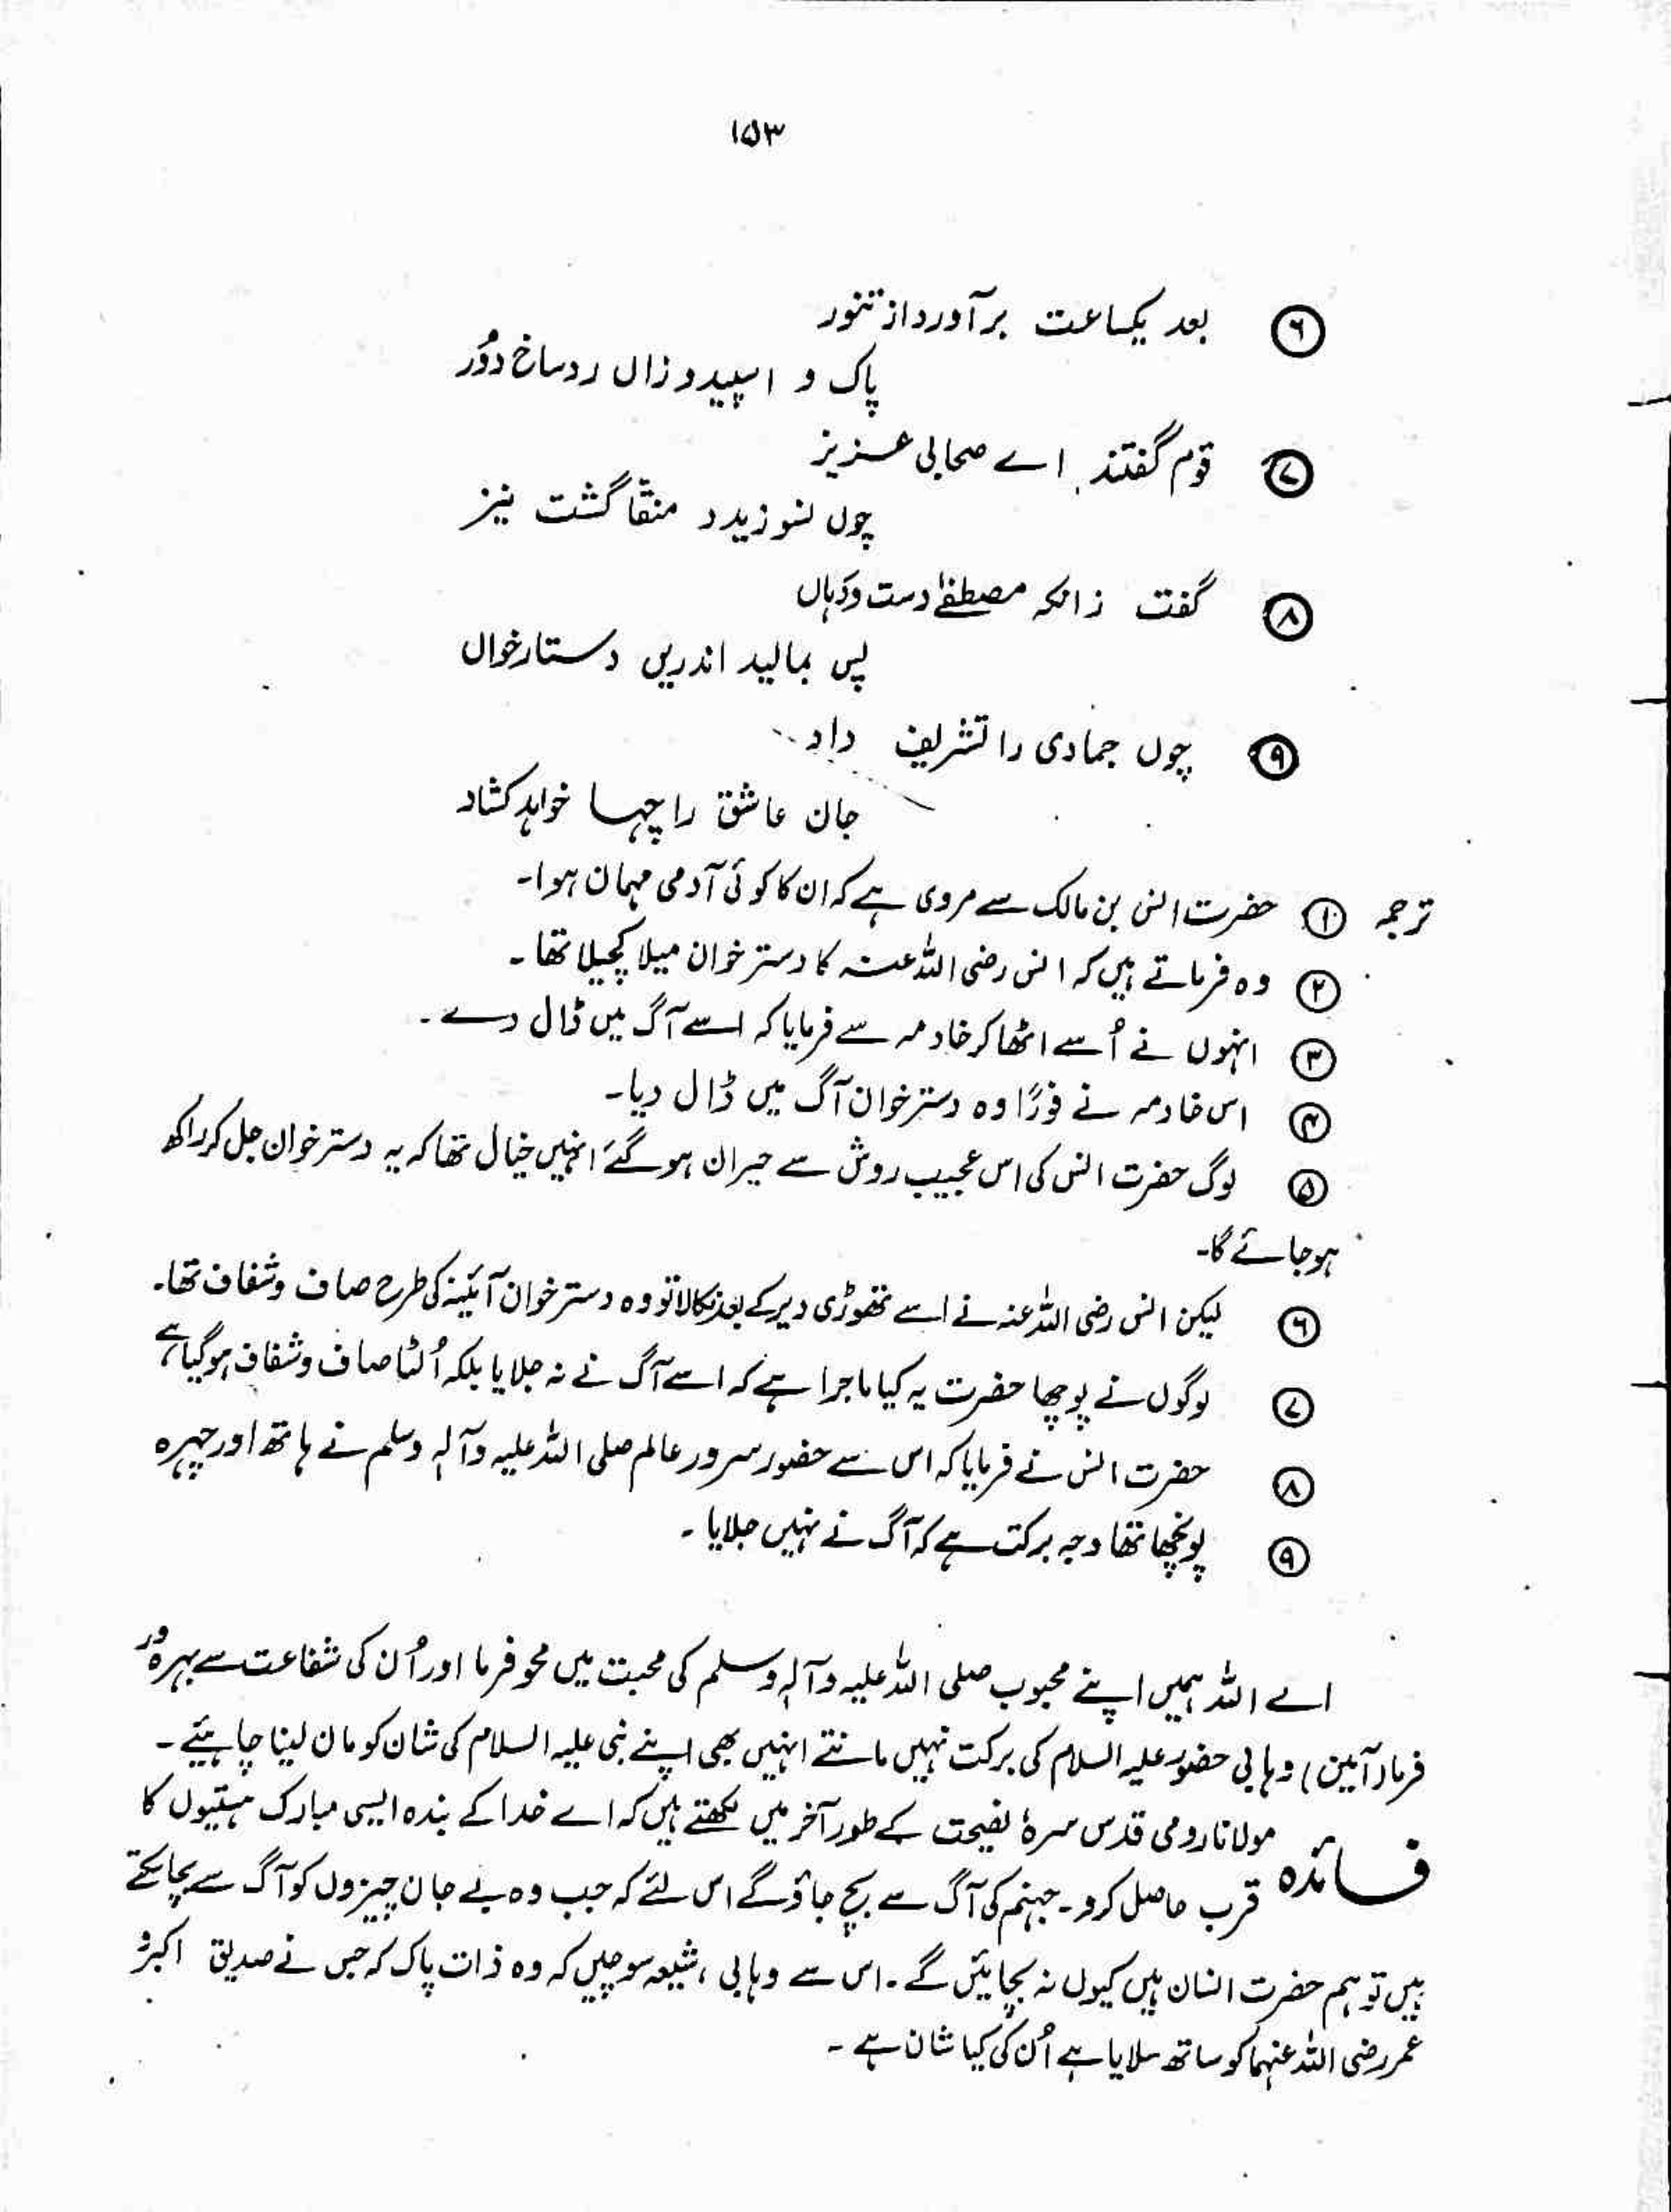 ۱۵۳
۶ بعد یکساعت برآورد از تنور
پاک و اسپید و زاں ردساخ دُور
۷ قوم گفتند اے صحابی عزیز
چوں نسوزیدد منقّا گشت نیز
۸ گفت زانکہ مصطفےٰ دست و دہاں
پس بمالید اندریں دستارخواں
۹ چوں جمادی را تشریف داد
جان عاشق را چہا خواہد کشاد
ترجمہ ۱ حضرت انس بن مالک سے مروی ہے کہ ان کا کوئی آدمی مہمان ہوا۔
۲ وہ فرماتے ہیں کہ انس رضی اللہ عنہ کا دسترخوان میلا کچیلا تھا۔
۳ انہوں نے اُسے اٹھا کر خادمہ سے فرمایا کہ اسے آگ میں ڈال دے۔
۴ اس خادمہ نے فورًا وہ دسترخوان آگ میں ڈال دیا۔
۵ لوگ حضرت انس کی اس عجیب روش سے حیران ہوگئے انہیں خیال تھا کہ یہ دسترخوان جل کر راکھ
ہوجائے گا۔
۶ لیکن انس رضی اللہ عنہ نے اسے تھوڑی دیر کے بعد نکالا تو وہ دسترخوان آئینہ کی طرح صاف و شفاف تھا۔
۷ لوگوں نے پوچھا حضرت یہ کیا ماجرا ہے کہ اسے آگ نے نہ جلایا بلکہ اُلٹا صاف و شفاف ہوگیا ہے
۸ حضرت انس نے فرمایا کہ اس سے حضور سرور عالم صلی اللہ علیہ وآلہٖ وسلم نے ہاتھ اور چہرہ
۹ پونچھا تھا وجہ برکت ہے کہ آگ نے نہیں جلایا۔
اے اللہ ہمیں اپنے محبوب صلی اللہ علیہ وآلہٖ وسلم کی محبت میں محو فرما اور اُن کی شفاعت سے بہرہ ور
فرما (آمین) وہابی حضور علیہ السلام کی برکت نہیں مانتے انہیں بھی اپنے نبی علیہ السلام کی شان کو مان لینا چاہیئے۔
فائدہ مولانا رومی قدس سرہٗ نصیحت کے طور آخر میں لکھتے ہیں کہ اے خدا کے بندہ ایسی مبارک ہستیوں کا
قرب حاصل کرو۔ جہنم کی آگ سے بچ جاؤ گے اس لئے کہ جب وہ بے جان چیزوں کو آگ سے بچا سکتے
ہیں تو ہم حضرت انسان ہیں کیوں نہ بچائیں گے۔ اس سے وہابی، شیعہ سوچیں کہ وہ ذات پاک کہ جس نے صدیق اکبر و
عمر رضی اللہ عنہما کو ساتھ سلایا ہے اُن کی کیا شان ہے۔